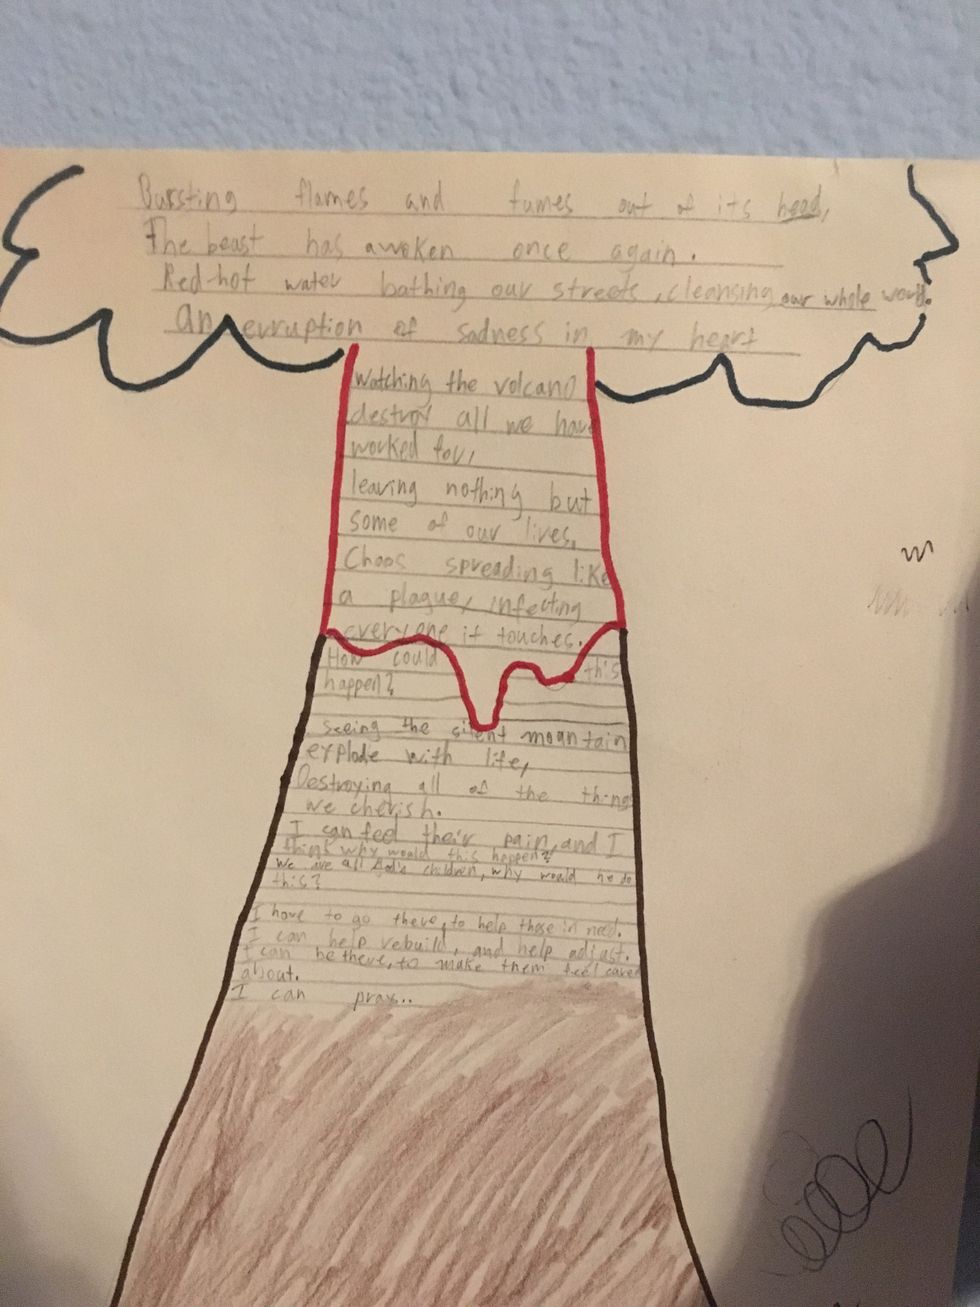 Bursting flames and fumes out of its head,
The beast has awoken once again.
Red-hot water bathing our streets, cleansing our whole world.
An erruption of sadness in my heart
Watching the volcano
destroy all we have
worked for,
leaving nothing but
some of our lives,
Chaos spreading like
a plague, infecting
everyone it touches.
How could this
happen?
seeing the silent mountain
explode with life,
Destroying all of the things
we cherish.
I can feel their pain, and I
think why would this happen?
We are all God's children, why would he do
this?
I have to go there, to help those in need.
I can help rebuild, and help adjust.
I can be there, to make them feel cared
about.
I can pray..